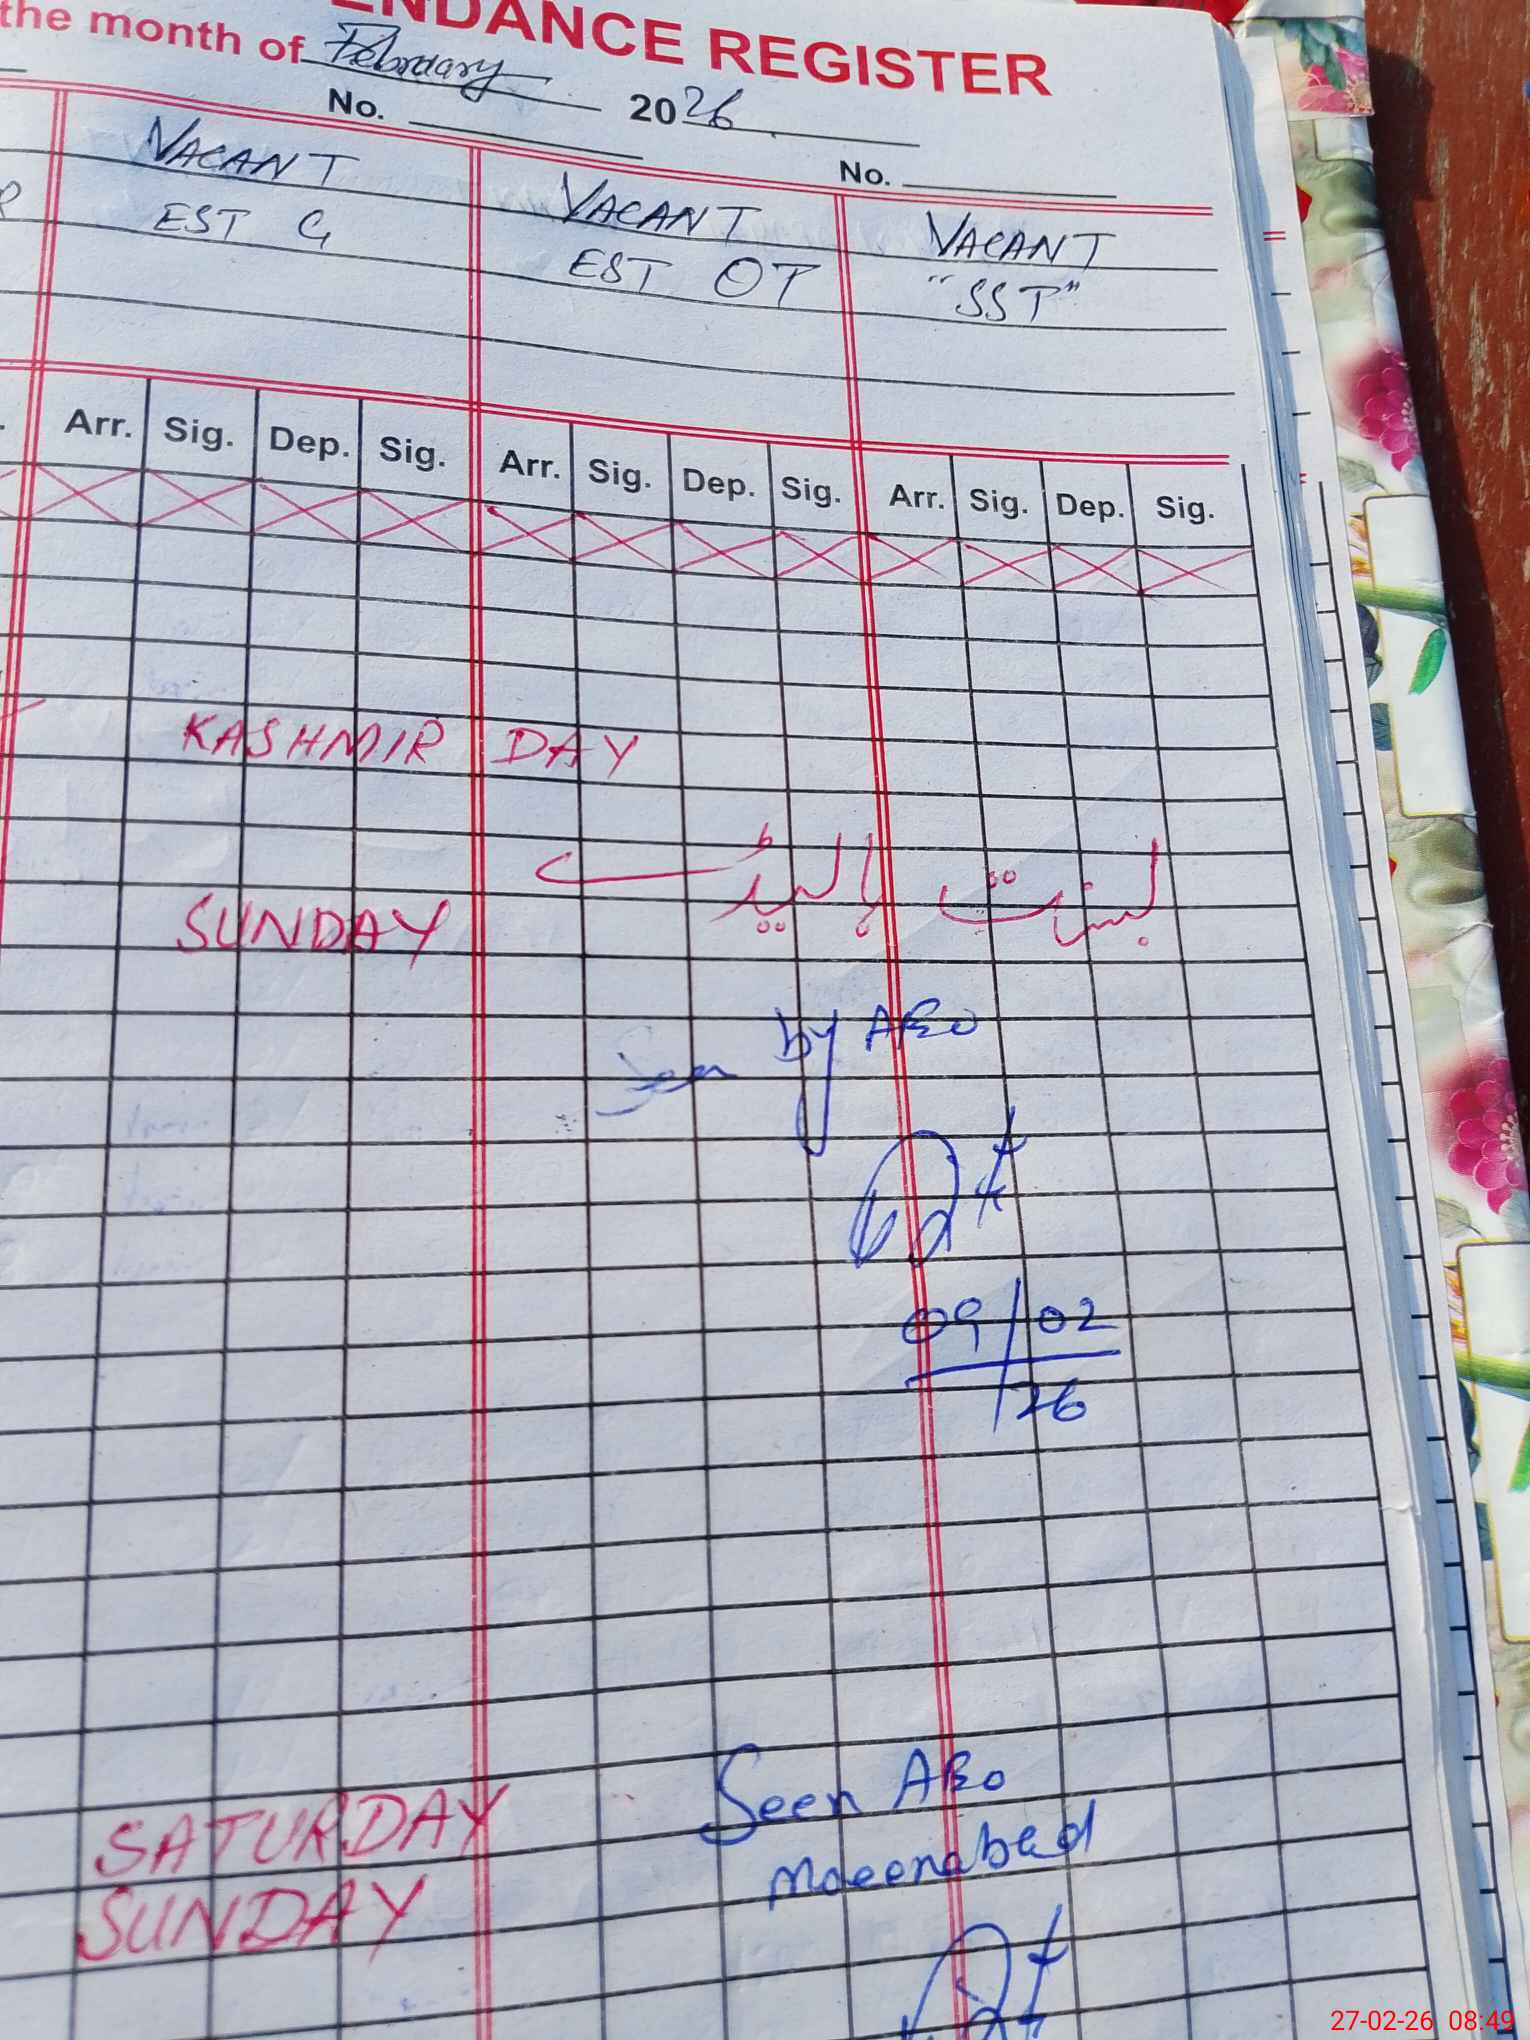 ENDANCE REGISTER
the month of February 2026
No.
No.
VACANT
EST G
VACANT
EST OT
VACANT
"SST"
Arr. Sig. Dep. Sig. Arr. Sig. Dep. Sig. Arr. Sig. Dep. Sig.
KASHMIR DAY
بسنت
SUNDAY
Seen by AEO
09/02
26
SATURDAY
SUNDAY
Seen AEO
27-02-26 08:49